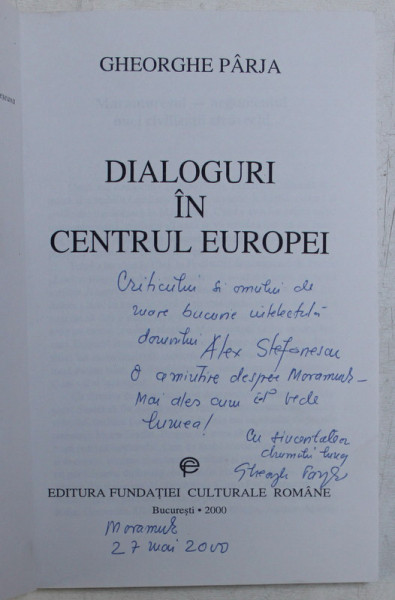 GHEORGHE PÂRJA
DIALOGURI
ÎN
CENTRUL EUROPEI
Criticului și omului de
mare bucurie intelectuală
domnului Alex Ștefănescu
O amintire despre Maramureș –
Mai ales cum îl vede
lumea!
Cu sinceritatea
EDITURA FUNDAȚIEI CULTURALE ROMÂNE
București • 2000
Maramureș
27 mai 2000